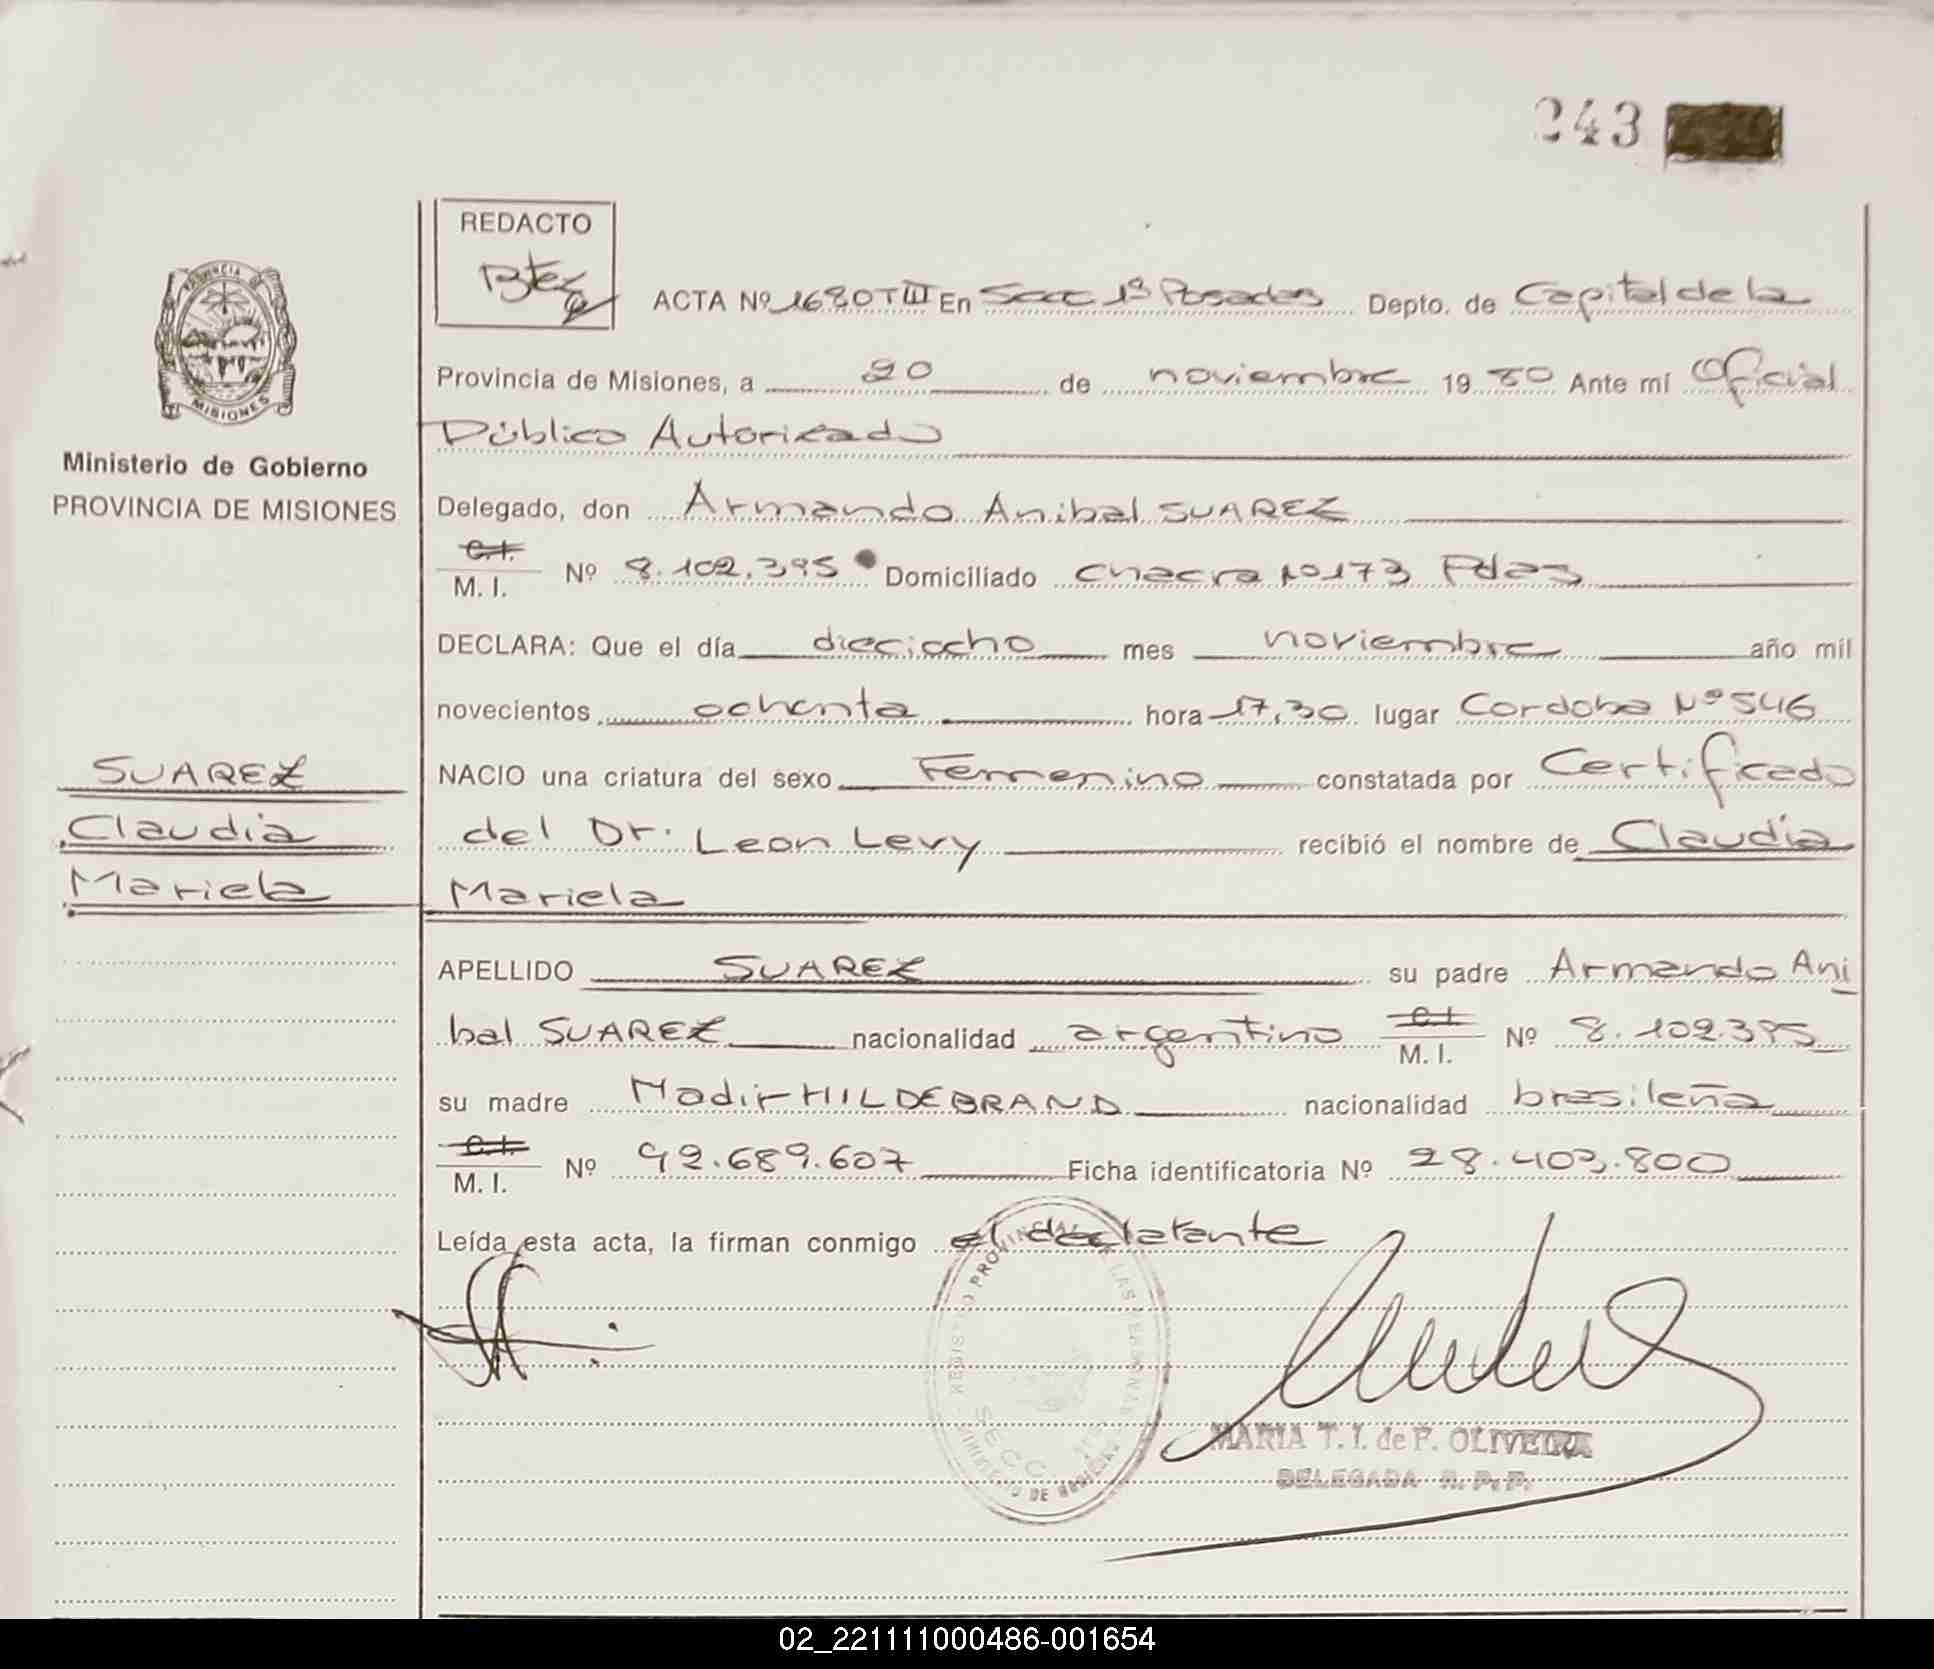 243
REDACTO
ACTA Nº 1680 T III En Secc 1ª Posadas Depto. de Capital de la
Provincia de Misiones, a 20 de noviembre 1980 Ante mí Oficial
Público Autorizado
PROVINCIA DE
MISIONES
Ministerio de Gobierno
PROVINCIA DE MISIONES
Delegado, don Armando Anibal SUAREZ
C.I.
M. I. Nº 8.102.395 Domiciliado chacra Nº 173 Pdas
DECLARA: Que el día dieciocho mes noviembre año mil
novecientos ochenta hora 17,30 lugar Cordoba Nº 546
NACIO una criatura del sexo Femenino constatada por Certificado
del Dr. Leon Levy recibió el nombre de Claudia
Mariela
SUAREZ
Claudia
Mariela
APELLIDO SUAREZ su padre Armando Ani
bal SUAREZ nacionalidad argentino C.I. M. I. Nº 8.102.395
su madre Nadir HILDEBRAND nacionalidad brasileña
C.I.
M. I. Nº 92.689.607 Ficha identificatoria Nº 28.403.800
Leída esta acta, la firman conmigo el declarante
REGISTRO PROVINCIAL DE LAS PERSONAS
SECC.
MINISTERIO DE GOBIERNO
MARIA T. I. de F. OLIVEIRA
DELEGADA R. P. P.
02_221111000486-001654